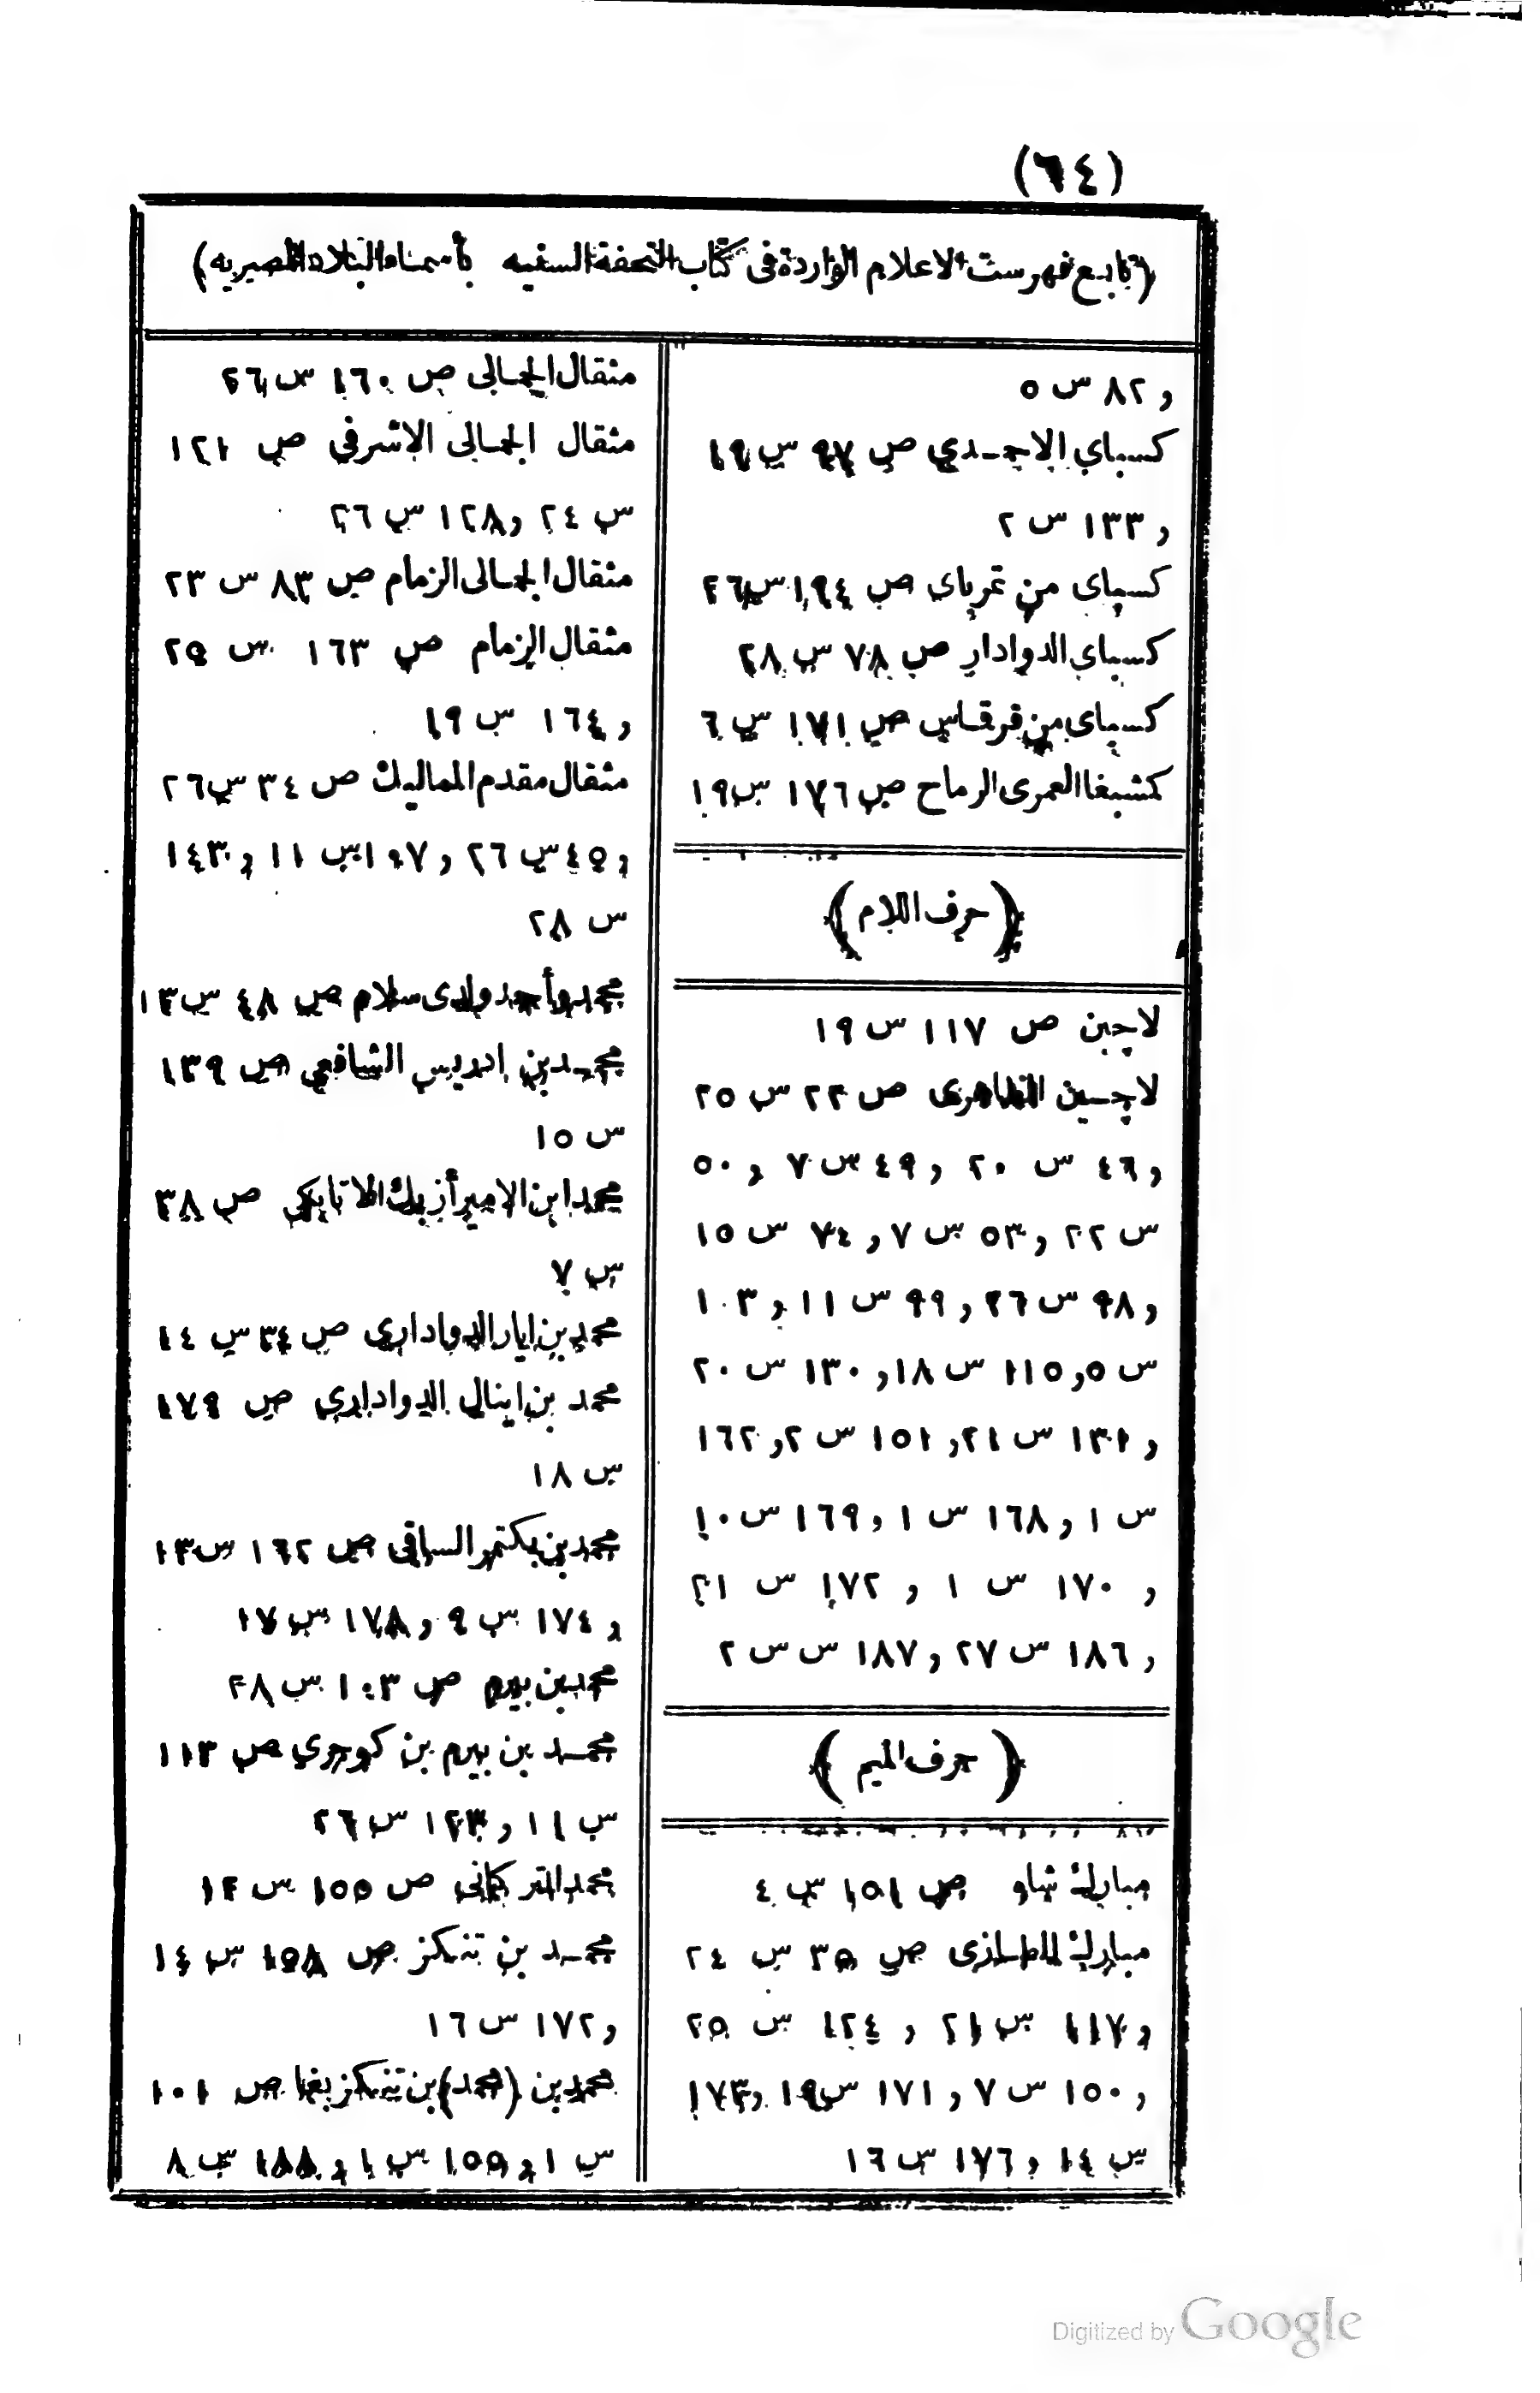 (٦٤)
(تابع فهرست الاعلام الواردة فى كتاب التحفة السنيه بأسماء البلاد المصريه)
و ٨٢ س ٥
كسباي الاحمدي ص ٩٧ س ١٩
و ١٣٣ س ٢
كسباى من تمرباى ص ١٩٤ س ٢٦
كسباى الدوادار ص ٧٨ س ٢٨
كسباى من قرقماس ص ١٧١ س ٦
كمشبغا العمرى الرماح ص ١٧٦ س ١٩
(حرف اللام)
لاجين ص ١١٧ س ١٩
لاجين الظاهرى ص ٢٢ س ٢٥
و ٤٦ س ٢٠ و ٤٩ س ٧ و ٥٠
س ٢٢ و ٥٣ س ٧ و ٧٤ س ١٥
و ٩٨ س ٢٦ و ٩٩ س ١١ و ١٠٣
س ٥ و ١١٥ س ١٨ و ١٣٠ س ٢٠
و ١٣١ س ٢١ و ١٥١ س ٢ و ١٦٢
س ١ و ١٦٨ س ١ و ١٦٩ س ١٠
و ١٧٠ س ١ و ١٧٢ س ٢١
و ١٨٦ س ٢٧ و ١٨٧ س س ٢
(حرف الميم)
مبارك شاه ص ١٥١ س ٤
مبارك الطازى ص ٣٥ س ٢٤
و ١١٧ س ٢١ و ١٢٤ س ٢٥
و ١٥٠ س ٧ و ١٧١ س ١٩ و ١٧٣
س ١٤ و ١٧٦ س ١٦
مثقال الجمالى ص ١٦٠ س ٢٦
مثقال الجمالى الاشرفي ص ١٢١
س ٢٤ و ١٢٨ س ٢٦
مثقال الجمالى الزمام ص ٨٣ س ٢٣
مثقال الزمام ص ١٦٣ س ٢٥
و ١٦٤ س ١٩
مثقال مقدم المماليك ص ٣٤ س ٢٦
و ٤٥ س ٢٦ و ١٠٧ س ١١ و ١٤٣
س ٢٨
محمد وأحمد ولدى سلام ص ٤٨ س ١٣
محمد بن ادريس الشافعي ص ١٣٩
س ١٥
محمد ابن الامير أزبك الاتابكي ص ٣٨
س ٧
محمد بن اياز الدوادارى ص ٣٤ س ١٤
محمد بن اينال الدوادارى ص ١٧٩
س ١٨
محمد بن بكتمر الساقى ص ١٦٢ س ١٣
و ١٧٤ س ٩ و ١٧٨ س ١٧
محمد بن بيرم ص ١٠٣ س ٢٨
محمد بن بيرم بن كوجري ص ١١٣
س ١١ و ١٢٣ س ٢٦
محمد التركمانى ص ١٥٥ س ١٢
محمد بن تنكز ص ١٥٨ س ١٤
و ١٧٢ س ١٦
محمد بن (محمد) بن تنكز بغا ص ١٠١
س ١ و ١٥٥ س ١ و ١٨٨ س ٨
Digitized by Google